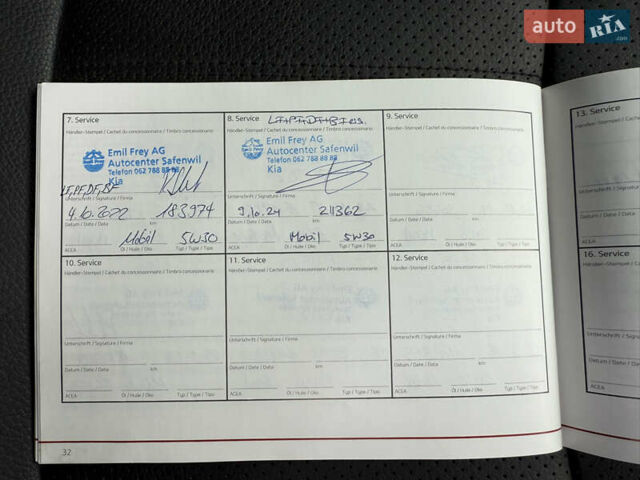 auto RIA.com
7. Service
Händler-Stempel / Cachet du concessionnaire / Timbro concessionario
Emil Frey AG
Autocenter Safenwil
Telefon 062 788 88 88
Kia
LF, PF, DF, BF
Unterschrift / Signature / Firma
4.10.2022 183974
Datum / Date / Data km
Mobil 5W30
ACEA Öl / Huile / Olio Typ / Type / Tipo
8. Service
Händler-Stempel / Cachet du concessionnaire / Timbro concessionario
Emil Frey AG
Autocenter Safenwil
Telefon 062 788 88 88
Kia
Unterschrift / Signature / Firma
9.10.24 211362
Datum / Date / Data km
Mobil 5W30
ACEA Öl / Huile / Olio Typ / Type / Tipo
9. Service
Händler-Stempel / Cachet du concessionnaire / Timbro concessionario
Unterschrift / Signature / Firma
Datum / Date / Data km
ACEA Öl / Huile / Olio Typ / Type / Tipo
10. Service
Händler-Stempel / Cachet du concessionnaire / Timbro concessionario
Unterschrift / Signature / Firma
Datum / Date / Data km
ACEA Öl / Huile / Olio Typ / Type / Tipo
11. Service
Händler-Stempel / Cachet du concessionnaire / Timbro concessionario
Unterschrift / Signature / Firma
Datum / Date / Data km
ACEA Öl / Huile / Olio Typ / Type / Tipo
12. Service
Händler-Stempel / Cachet du concessionnaire / Timbro concessionario
Unterschrift / Signature / Firma
Datum / Date / Data km
ACEA Öl / Huile / Olio Typ / Type / Tipo
32
13. Service
Händler-Stempel
Unterschrift / Sig
Datum / Date / Da
ACEA
16. Service
Händler-Stempel / C
Unterschrift / Sign
Datum / Date / Data
ACEA